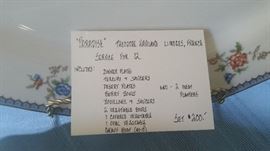 "PARADISE" THEODORE HAVILAND LIMOGES, FRANCE
SERVICE FOR 12
INCLUDES:
DINNER PLATES
TEACUPS & SAUCERS
DESERT PLATES
AND - 2 MEAT
BUTTER BOWLS
PLATTERS
BOUILLONS & SAUCERS
2 VEGETABLE BOWLS
1 COVERED VEGETABLE
1 OVAL VEGETABLE
SET $200.-
GRAVY BOAT